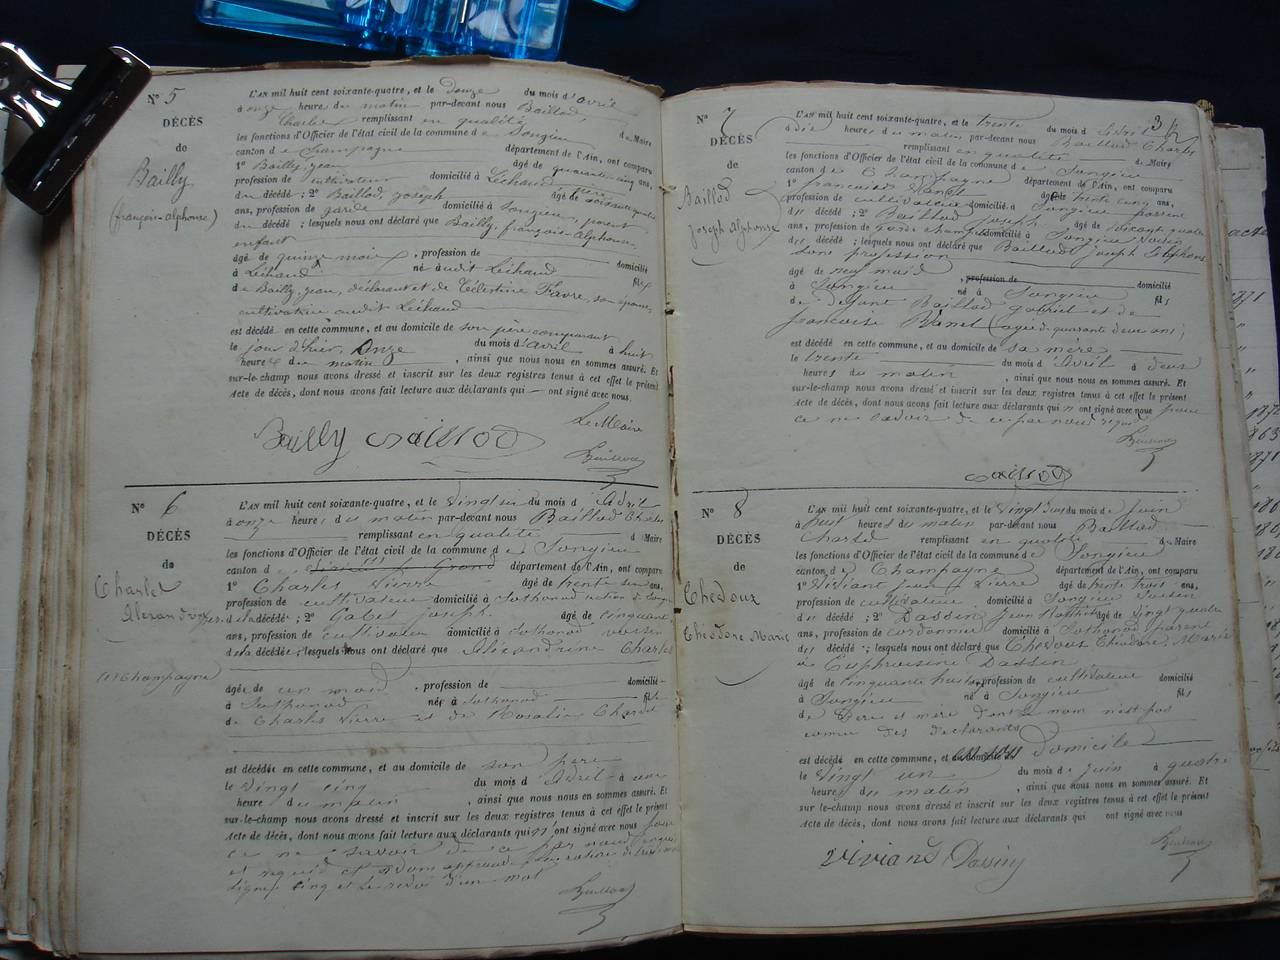 N° 5
DÉCÈS
de
Bailly
(françois-alphonse)
L'AN mil huit cent soixante-quatre, et le douze du mois d'avril
à onze heure du matin par-devant nous Baillod,
Charles remplissant en qualité de Maire
les fonctions d'Officier de l'état civil de la commune de Songieu
canton de Champagne département de l'Ain, ont comparu
1° Bailly, jean âgé de quarante cinq ans,
profession de cultivateur domicilié à Léchaud père
du décédé ; 2° Baillod, joseph âgé de soixante quatre
ans, profession de garde domicilié à Songieu, parent
du décédé ; lesquels nous ont déclaré que Bailly, françois-Alphonse,
enfant
âgé de quinze mois , profession de domicilié
à Léchaud né audit Léchaud fils
de Bailly, jean, déclarant et de Célestine Favre, son épouse,
cultivatrice audit Léchaud
est décédé en cette commune, et au domicile de son père comparant
le jour d'hier, onze du mois d'avril à huit
heures du matin , ainsi que nous nous en sommes assuré. Et
sur-le-champ nous avons dressé et inscrit sur les deux registres tenus à cet effet le présent
Acte de décès, dont nous avons fait lecture aux déclarants qui ont signé avec nous.
Le Maire
Bailly Baillod
Baillod
N° 6
DÉCÈS
de
Charlet
Alexandrine
(1) Champagne
L'AN mil huit cent soixante-quatre, et le vingt six du mois d Avril
à onze heures du matin par-devant nous Baillod Charles
remplissant en qualité d Maire
les fonctions d'Officier de l'état civil de la commune de Songieu
canton de département de l'Ain, ont comparu
1° Charles Pierre âgé de trente ans,
profession de cultivateur domicilié à Sothonod section de Songieu
de la décédée ; 2° Gabet joseph âgé de cinquante
ans, profession de cultivateur domicilié à Sothonod voisin
de la décédée ; lesquels nous ont déclaré que Alexandrine Charlet
âgée de un mois , profession de domicilié
à Sothonod née à Sothonod fille
de Charles Pierre et de Rosalie Charlet
est décédée en cette commune, et au domicile de son père
le vingt cinq du mois d Avril à une
heure du matin , ainsi que nous nous en sommes assuré. Et
sur-le-champ nous avons dressé et inscrit sur les deux registres tenus à cet effet le présent
Acte de décès, dont nous avons fait lecture aux déclarants qui n'ont signé avec nous pour
ce ne savoir de ce par nous enquis
et requis et avons approuvé la rature de
ligne cinq et le renvoi d'un mot
Baillod
N° 7
DÉCÈS
de
Baillod
joseph Alphonse
L'AN mil huit cent soixante-quatre, et le trente du mois d Avril
à dix heures du matin par-devant nous Baillod Charles
remplissant en qualité de Maire
les fonctions d'Officier de l'état civil de la commune de Songieu
canton de Champagne département de l'Ain, ont comparu
1° francoise âgé de trente cinq ans,
profession de cultivateur domicilié à Songieu parent
du décédé ; 2° Baillod joseph âgé de soixante quatre
ans, profession de garde champêtre domicilié à Songieu voisin
du décédé ; lesquels nous ont déclaré que Baillod joseph Alphonse
sans profession
âgé de neuf mois , profession de domicilié
à Songieu né à Songieu fils
de defunt Baillod gabriel et de
francoise (agée de quarante deux ans)
est décédé en cette commune, et au domicile de sa mère
le trente du mois d Avril à deux
heures du matin , ainsi que nous nous en sommes assuré. Et
sur-le-champ nous avons dressé et inscrit sur les deux registres tenus à cet effet le présent
Acte de décès, dont nous avons fait lecture aux déclarants qui n'ont signé avec nous pour
ce ne savoir de ce par nous requis
Baillod
Baillod
N° 8
DÉCÈS
de
Chedoux
Théodore Marie
L'AN mil huit cent soixante-quatre, et le vingt deux du mois de juin
à huit heures du matin par-devant nous Baillod
Charles remplissant en qualité de Maire
les fonctions d'Officier de l'état civil de la commune de Songieu
canton de Champagne département de l'Ain, ont comparu
1° Viviant jean Pierre âgé de trente trois ans,
profession de cultivateur domicilié à Songieu voisin
du décédé ; 2° Dassin jean âgé de vingt quatre
ans, profession de cordonnier domicilié à Sothonod parent
du décédé ; lesquels nous ont déclaré que Chedoux Théodore, Marie
Euphrosine Dassin
âgé de cinquante huit ans, profession de cultivateur domicilié
à Songieu né à Songieu fils
de père et mère dont le nom n'est pas
connu des declarants
est décédé en cette commune, et domicile
le vingt un du mois de juin à quatre
heures du matin , ainsi que nous nous en sommes assuré. Et
sur-le-champ nous avons dressé et inscrit sur les deux registres tenus à cet effet le présent
Acte de décès, dont nous avons fait lecture aux déclarants qui ont signé avec nous
viviand Dassin
Baillod